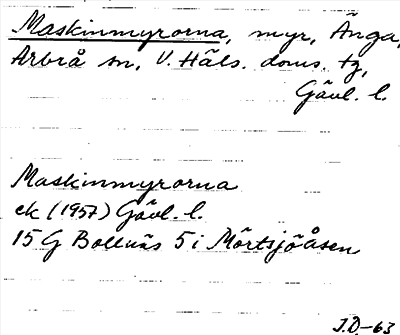 Maskinmyrorna, myr, Änga,
Arbrå sn, V. Häls. doms. tg,
Gävl. l.
Maskinmyrorna
ek (1957) Gävl. l.
15 G Bollnäs 5 i Mörtsjöåsen
J.D.-63